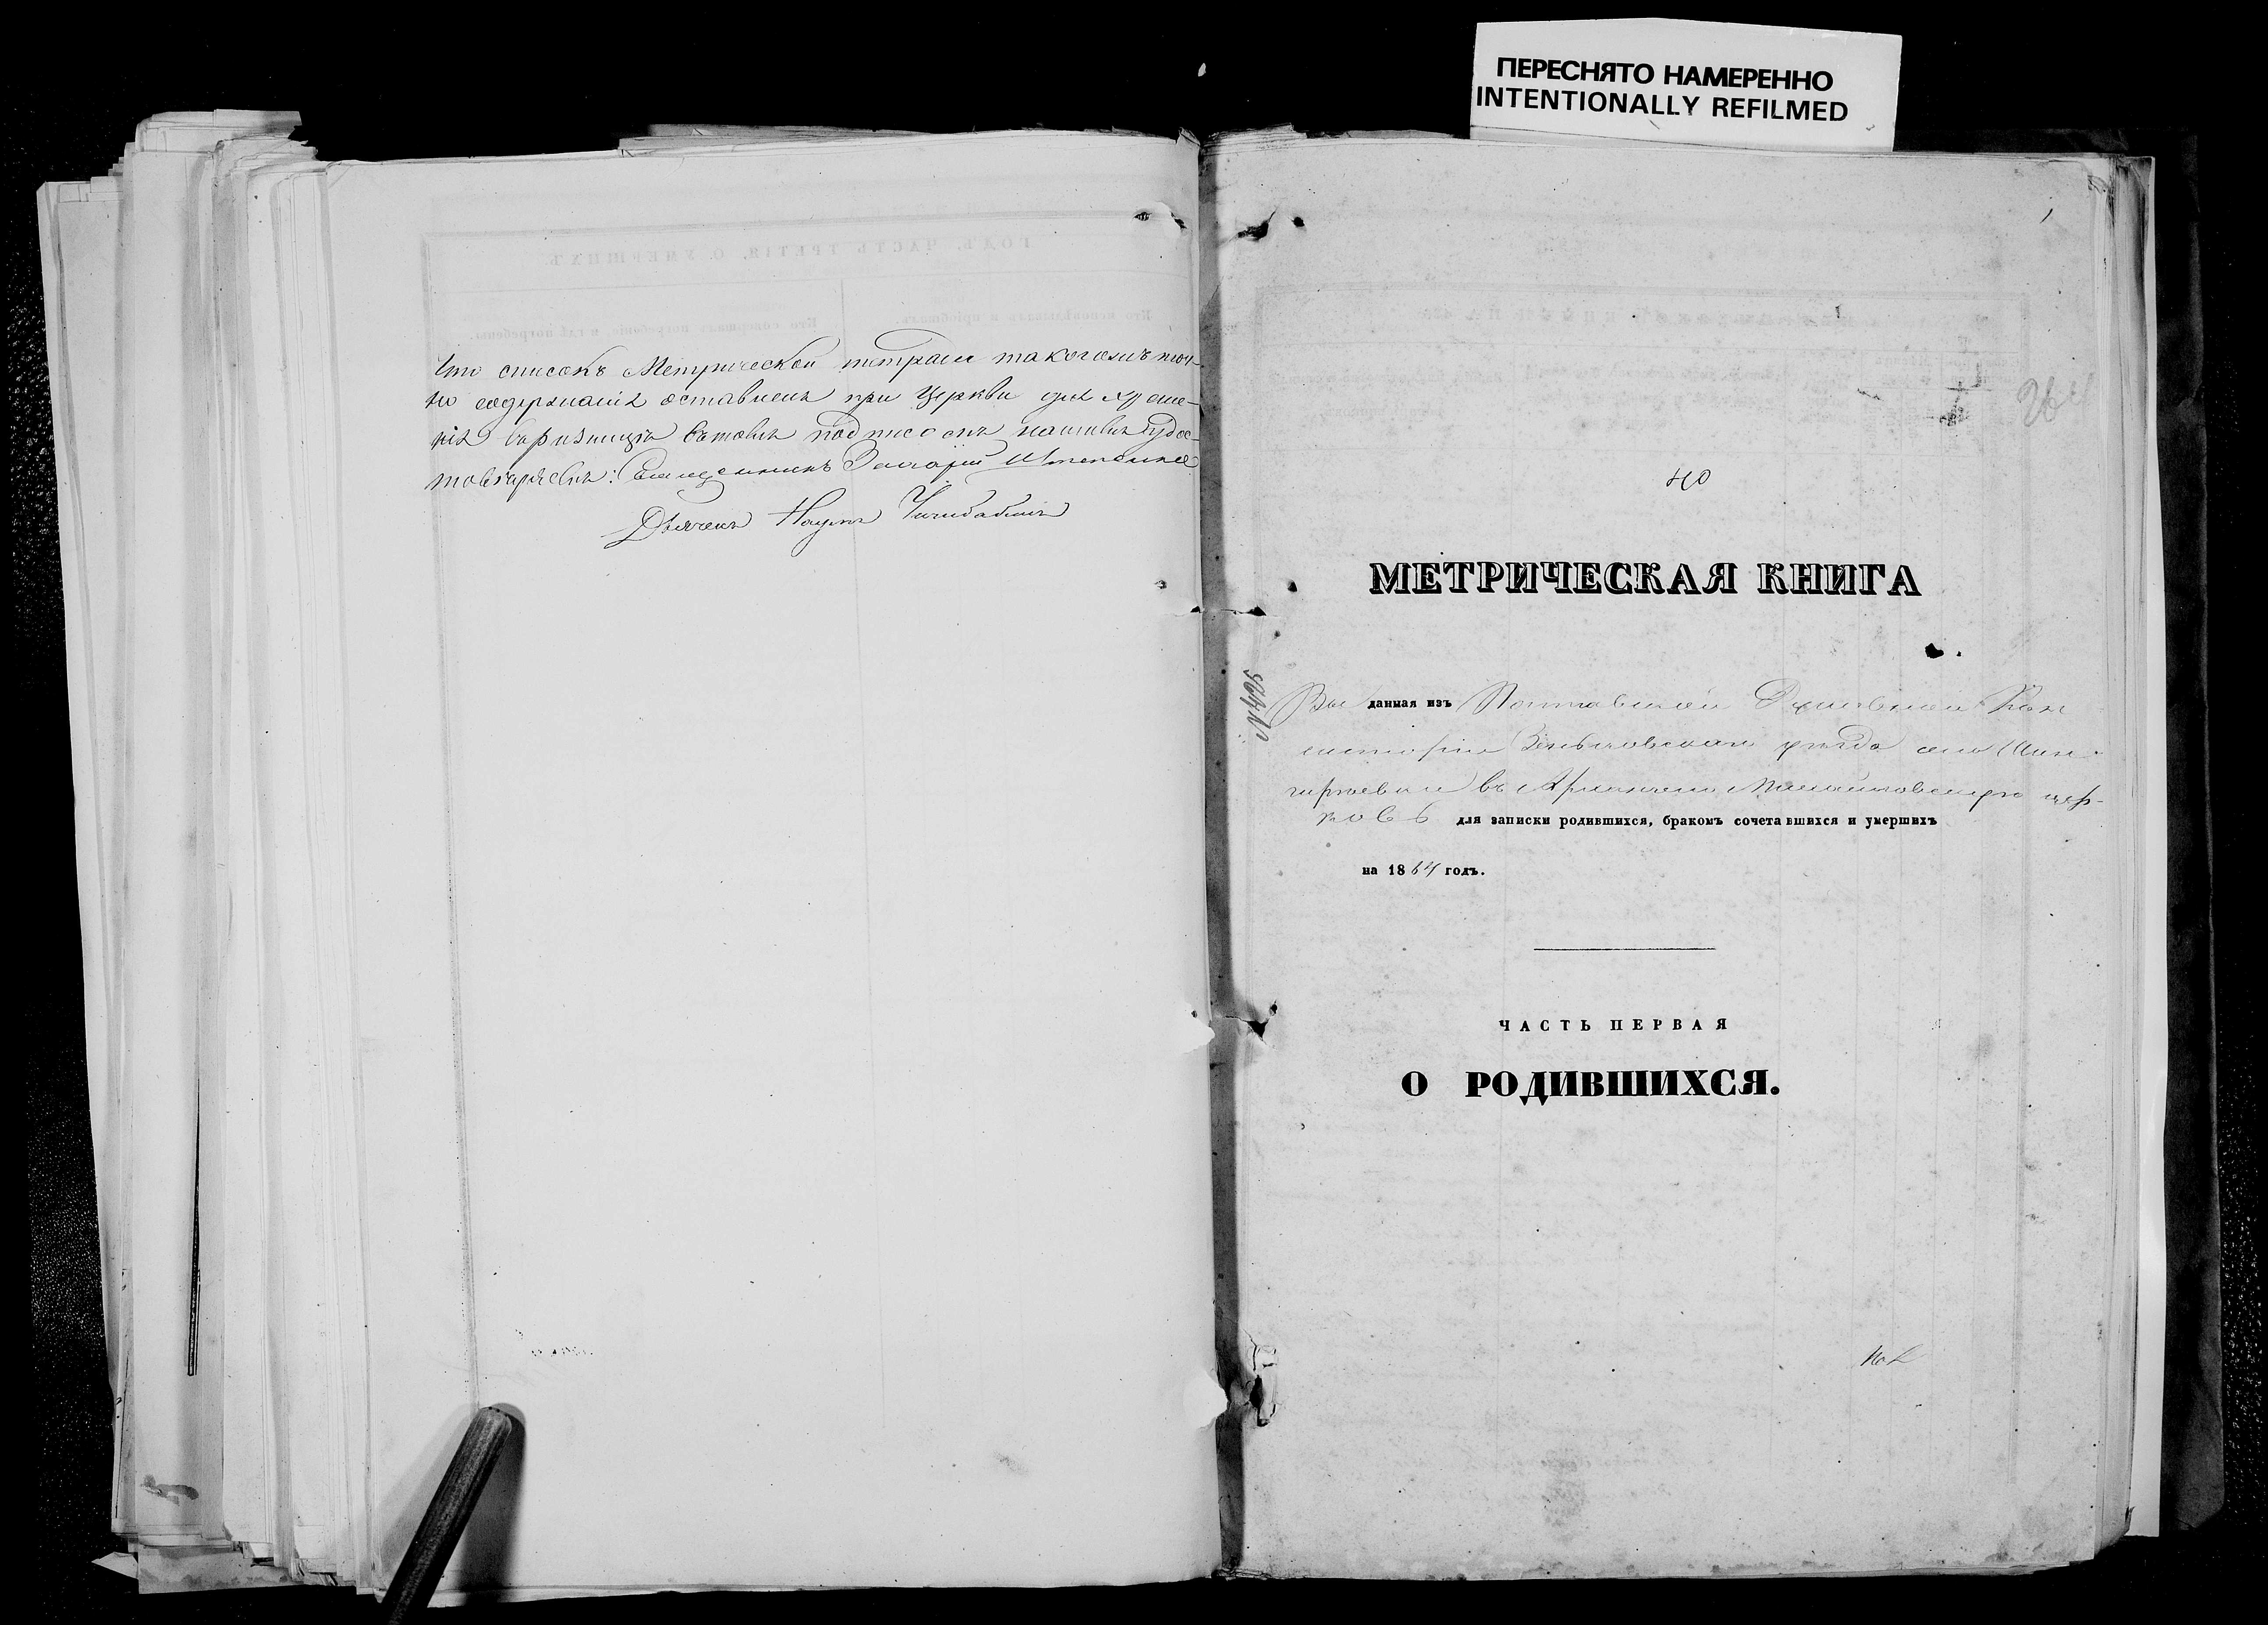 ПЕРЕСНЯТО НАМЕРЕННО
INTENTIONALLY REFILMED
Что списокъ Метрической тетради такогожъ точ-
но содержанія оставленъ при Церкви для хране-
нія въ ризницѣ въ томъ подписомъ нашимъ удос-
товѣряемъ: Священникъ Захарій
Дьячекъ Наумъ Чичибабинъ
1
264
40
МЕТРИЧЕСКАЯ КНИГА
Вы данная изъ Полтавской Духовной Кон
систоріи Зеньковскаго уѣзда села
въ Архангело Михайловскую цер-
ковь для записки родившихся, бракомъ сочетавшихся и умершихъ
на 1864 годъ.
ЧАСТЬ ПЕРВАЯ
О РОДИВШИХСЯ.